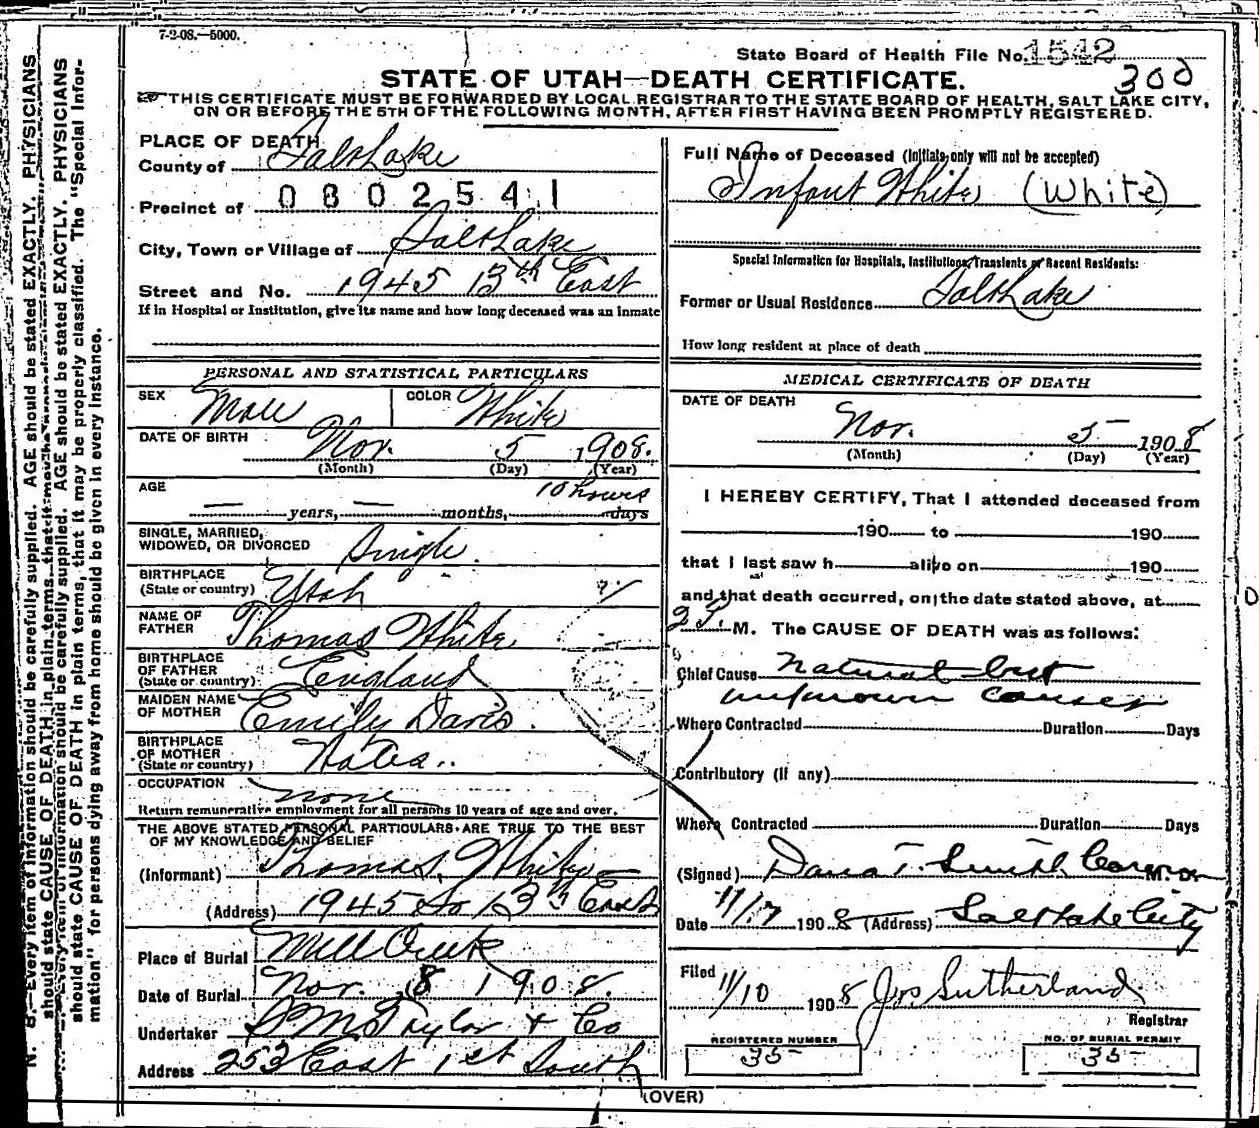 7-2-08.—5000.
State Board of Health File No. 1542
300
STATE OF UTAH—DEATH CERTIFICATE.
THIS CERTIFICATE MUST BE FORWARDED BY LOCAL REGISTRAR TO THE STATE BOARD OF HEALTH, SALT LAKE CITY,
ON OR BEFORE THE 5TH OF THE FOLLOWING MONTH, AFTER FIRST HAVING BEEN PROMPTLY REGISTERED.
PLACE OF DEATH
County of Salt Lake
Precinct of 0802541
City, Town or Village of Salt Lake
Street and No. 1945 13th East
If in Hospital or Institution, give its name and how long deceased was an inmate
PERSONAL AND STATISTICAL PARTICULARS
SEX Male COLOR White
DATE OF BIRTH Nov. 5 1908.
(Month) (Day) (Year)
AGE 10 hours
— years, — months, days
SINGLE, MARRIED,
WIDOWED, OR DIVORCED Single.
BIRTHPLACE
(State or country) Utah
NAME OF
FATHER Thomas White
BIRTHPLACE
OF FATHER
(State or country) England
MAIDEN NAME
OF MOTHER Emily Davis.
BIRTHPLACE
OF MOTHER
(State or country) Wales..
OCCUPATION none
Return remunerative employment for all persons 10 years of age and over.
THE ABOVE STATED PERSONAL PARTICULARS ARE TRUE TO THE BEST
OF MY KNOWLEDGE AND BELIEF
(Informant) Thomas White
(Address) 1945 So 13th East
Place of Burial Mill Creek
Date of Burial Nov. 8 1908.
Undertaker S M Taylor & Co
Address 253 East 1st South
Full Name of Deceased (Initials only will not be accepted)
Infant White (White)
Special Information for Hospitals, Institutions, Transients or Recent Residents:
Former or Usual Residence Salt Lake
How long resident at place of death
MEDICAL CERTIFICATE OF DEATH
DATE OF DEATH
Nov. 5 1908
(Month) (Day) (Year)
I HEREBY CERTIFY, That I attended deceased from
190 to 190
that I last saw h alive on 190
and that death occurred, on the date stated above, at
M. The CAUSE OF DEATH was as follows:
Chief Cause Natural but
unknown causes
Where Contracted Duration Days
Contributory (if any)
Where Contracted Duration Days
(Signed) Dana T. Smith M. D.
Date 11/17 1908 (Address) Salt Lake City
Filed 11/10 1908 Jos Sutherland
Registrar
REGISTERED NUMBER
35
NO. OF BURIAL PERMIT
35
(OVER)
N. B.—Every item of information should be carefully supplied. AGE should be stated EXACTLY. PHYSICIANS
should state CAUSE OF DEATH in plain terms, that it may be
information should be carefully supplied. AGE should be stated EXACTLY. PHYSICIANS
should state CAUSE OF DEATH in plain terms, that it may be properly classified. The "Special Infor-
mation" for persons dying away from home should be given in every instance.